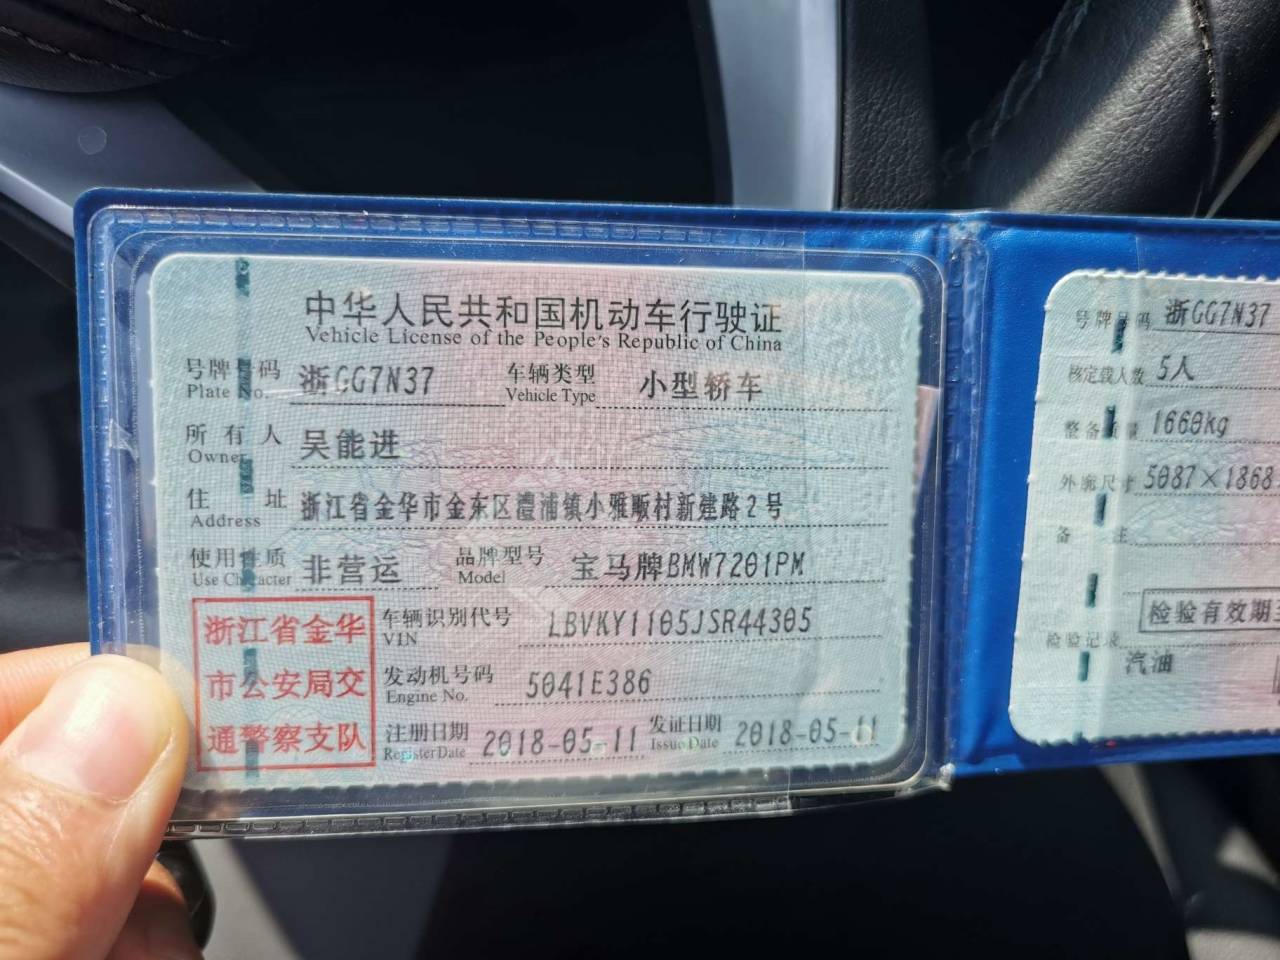 中华人民共和国机动车行驶证
Vehicle License of the People's Republic of China
号牌号码 浙GG7N37 车辆类型 小型轿车
Plate No. Vehicle Type
所有人 吴能进
Owner
住址 浙江省金华市金东区澧浦镇小雅畈村新建路2号
Address
使用性质 非营运 品牌型号 宝马牌BMW7201PM
Use Character Model
浙江省金华
市公安局交
通警察支队
车辆识别代号 LBVKY1105JSR44305
VIN
发动机号码 5041E386
Engine No.
注册日期 2018-05-11 发证日期 2018-05-11
Register Date Issue Date
号牌号码 浙GG7N37
核定载人数 5人
整备质量 1660kg
外廓尺寸 5087×1868
备注
检验有效期
检验记录
汽油